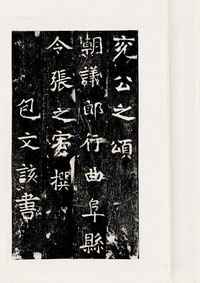 兖公之頌
朝議郎行曲阜縣
令張之宏撰
包文該書